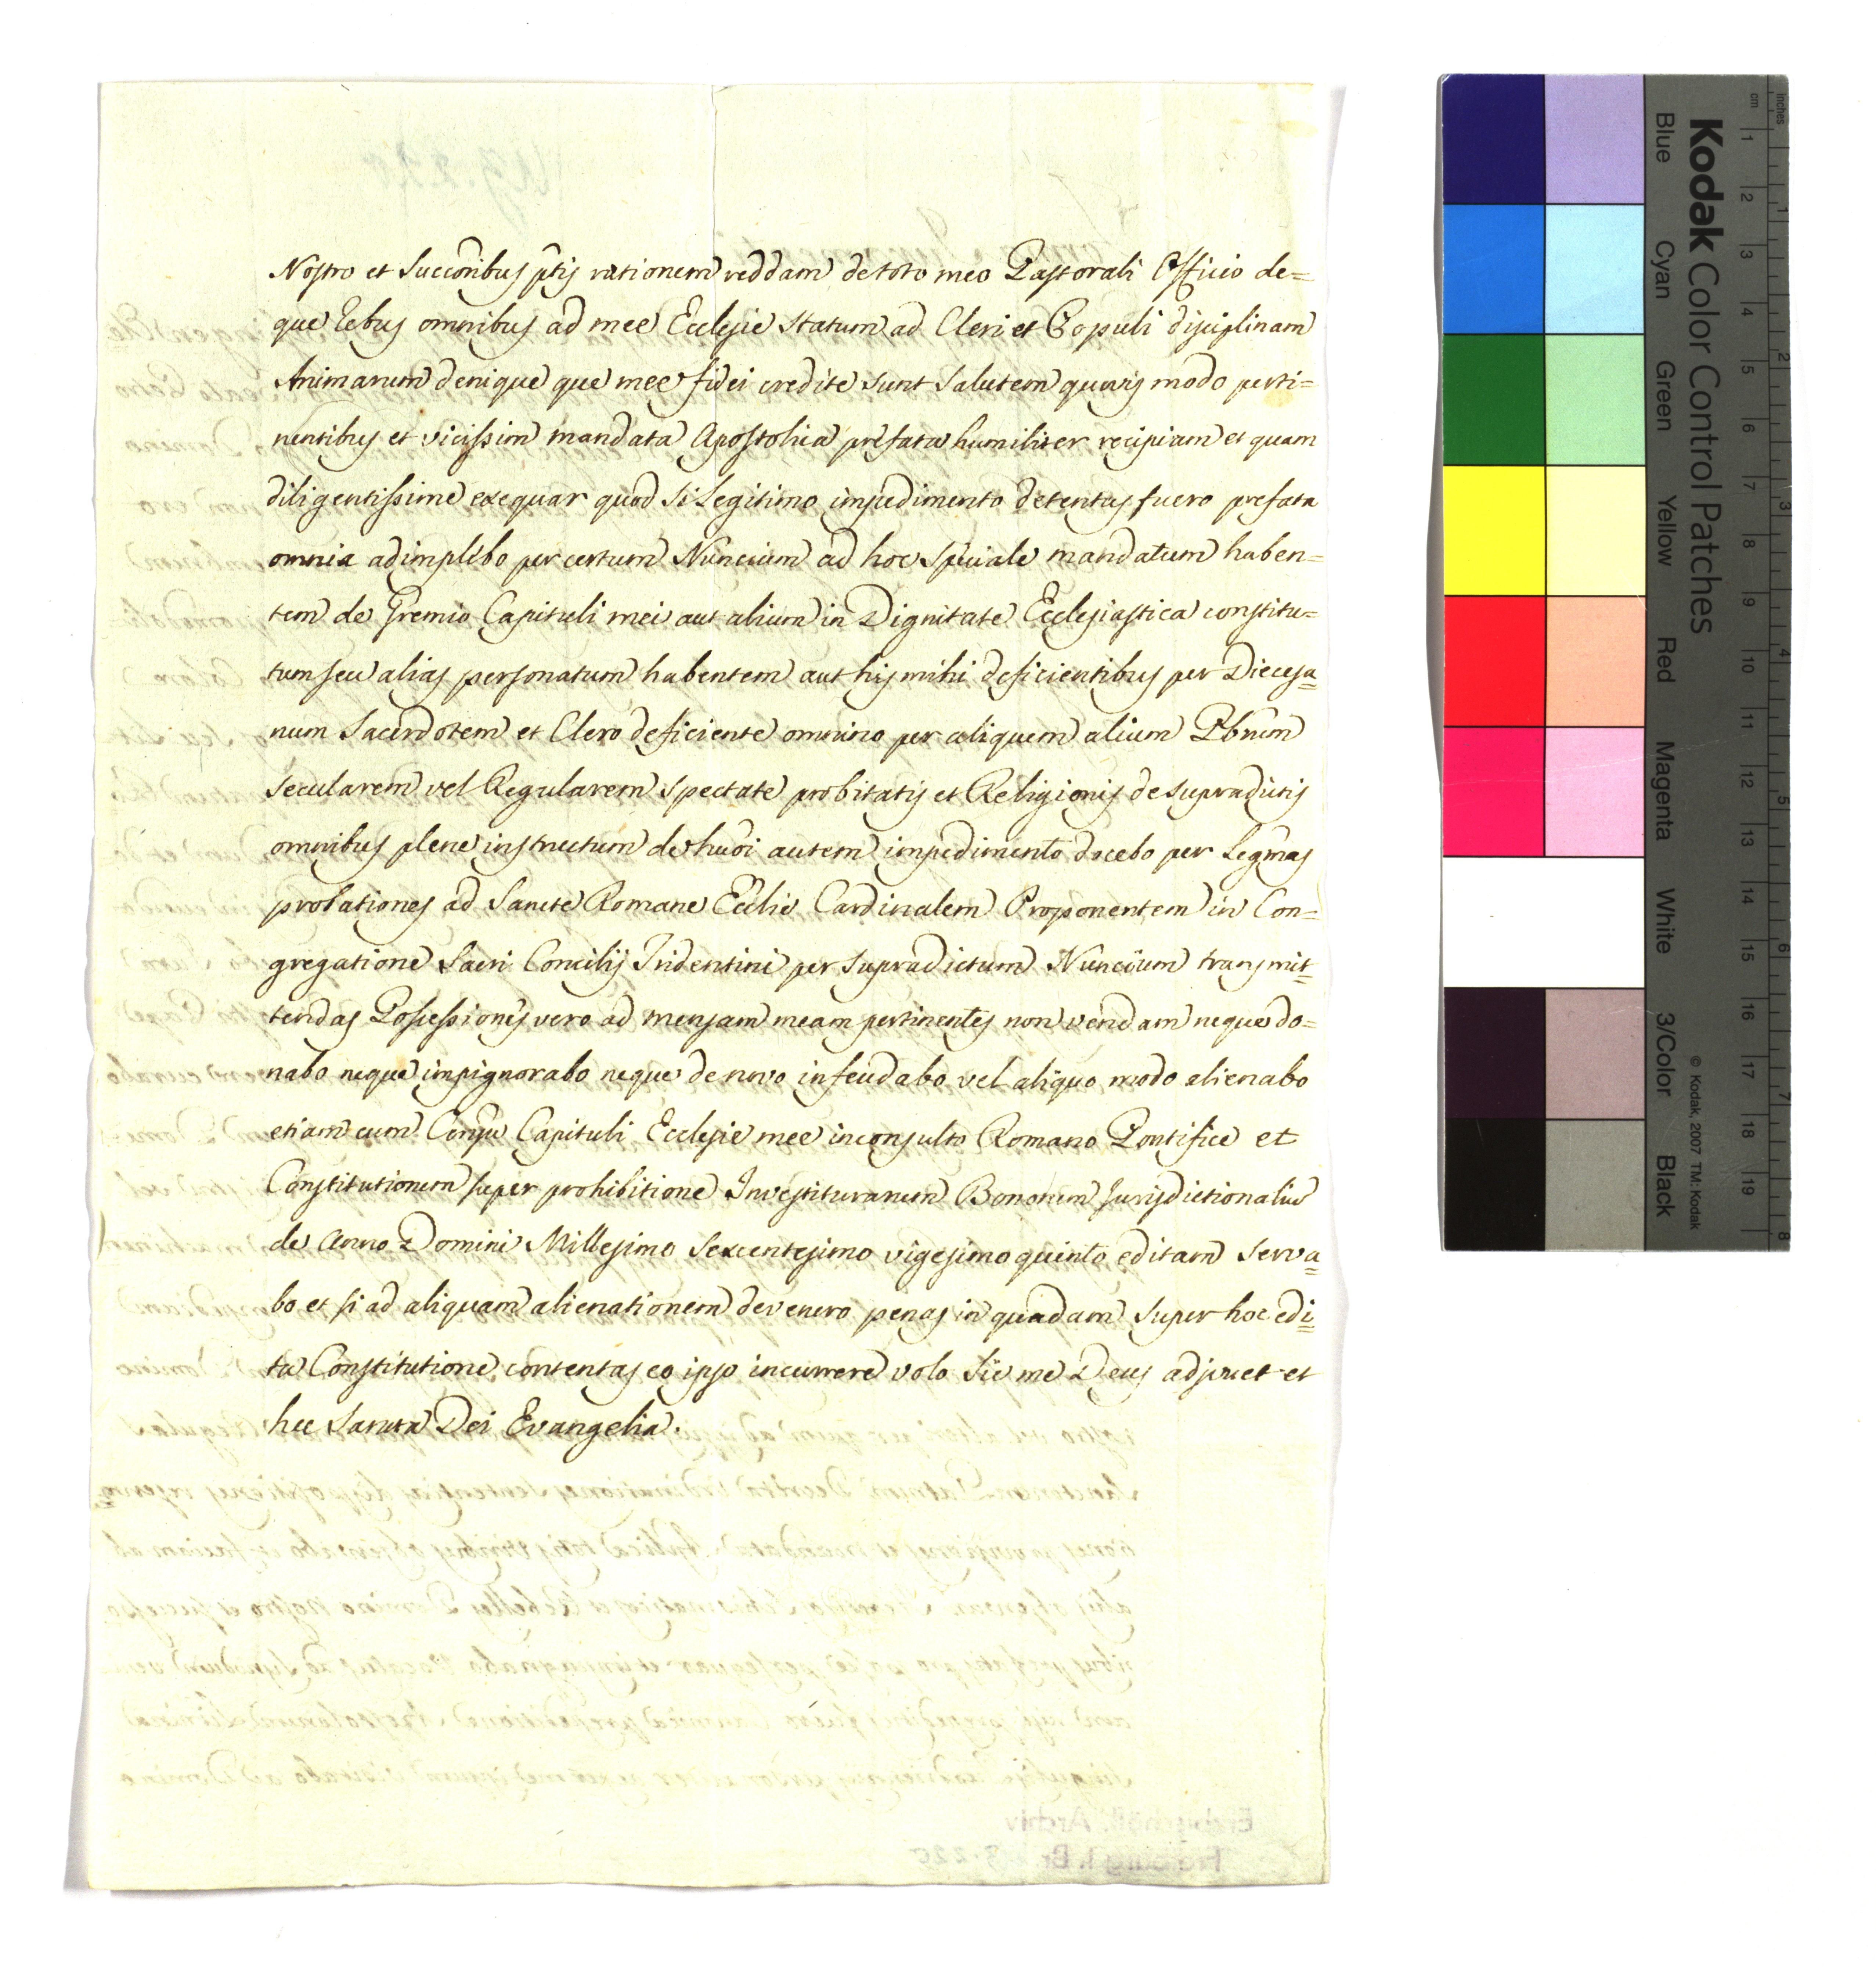 Nostro et Succoribus ptis rationem reddam de toto meo Pastorali Officio de=
que Rebus omnibus ad mee Ecclesie Statum ad Cleri et Populi disiplinam
Animarum denique que mee fidei credite sunt Salutem quovis modo perti=
nentibus et vicissim mandata Apostolica prefata humiliter recipiam et quam
diligentissime exequar quod Si Legitimo impedimento detentus fuero prefata
omnia adimplebo per certum Nuncium ad hoc Speciale mandatum haben=
tem de Gremio Capituli mei aut alium in Dignitate Ecclesiastica constitu=
tum seu alias personatum habentem aut his mihi deficientibus per Diecesa=
num Sacerdotem et Clero deficiente omnino per aliquem alium Pbrum
Secularem vel Regularem Spectate probitatis et Religionis de Supradictis
omnibus plene instructum de hudi autem impedimento docebo per Legmas
probationes ad Sancte Romane Ecclie Cardinalem Proponentem in Con=
gregatione Sacri Concilij Tridentini per Supradictum Nuncium transmit=
tendas Possessiones vero ad mensam meam pertinentes non vendam neque do=
nabo neque impignorabo neque de novo infeudabo vel aliquo modo alienabo
etiam cum Consu Capituli Ecclesie mee inconsulto Romano Pontifice et
Constitutionem super prohibitione Investiturarum Bonorum Jurisdictionaliu
de Anno Domini Millesimo Sexcentesimo vigesimo quinto editam Serva=
bo et si ad aliquam alienationem devenero penas in quadam Super hoc edi=
ta Constitutione contentas eo ipso incurrere volo Sic me Deus adjuvet et
hec Sancta Dei Evangelia.
Kodak Color Control Patches
Blue Cyan Green Yellow Red Magenta White 3/Color Black
© Kodak, 2007 TM: Kodak
inches 1 2 3 4 5 6 7 8
cm 1 2 3 4 5 6 7 8 9 10 11 12 13 14 15 16 17 18 19